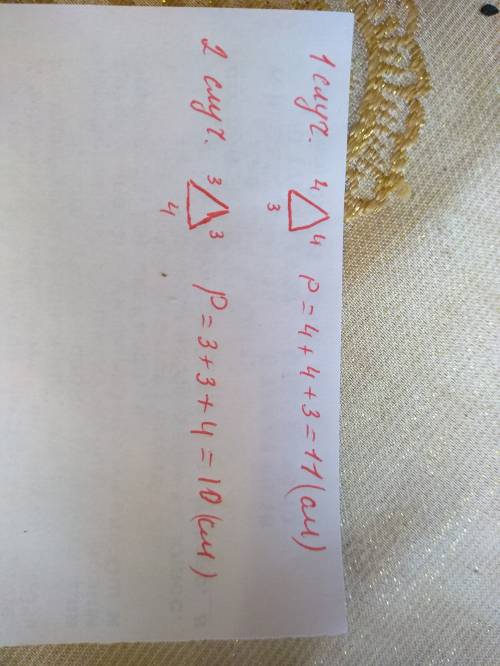 1 случ. 4 4 3 P = 4 + 4 + 3 = 11 (см)
2 случ. 3 3 4 P = 3 + 3 + 4 = 10 (см)